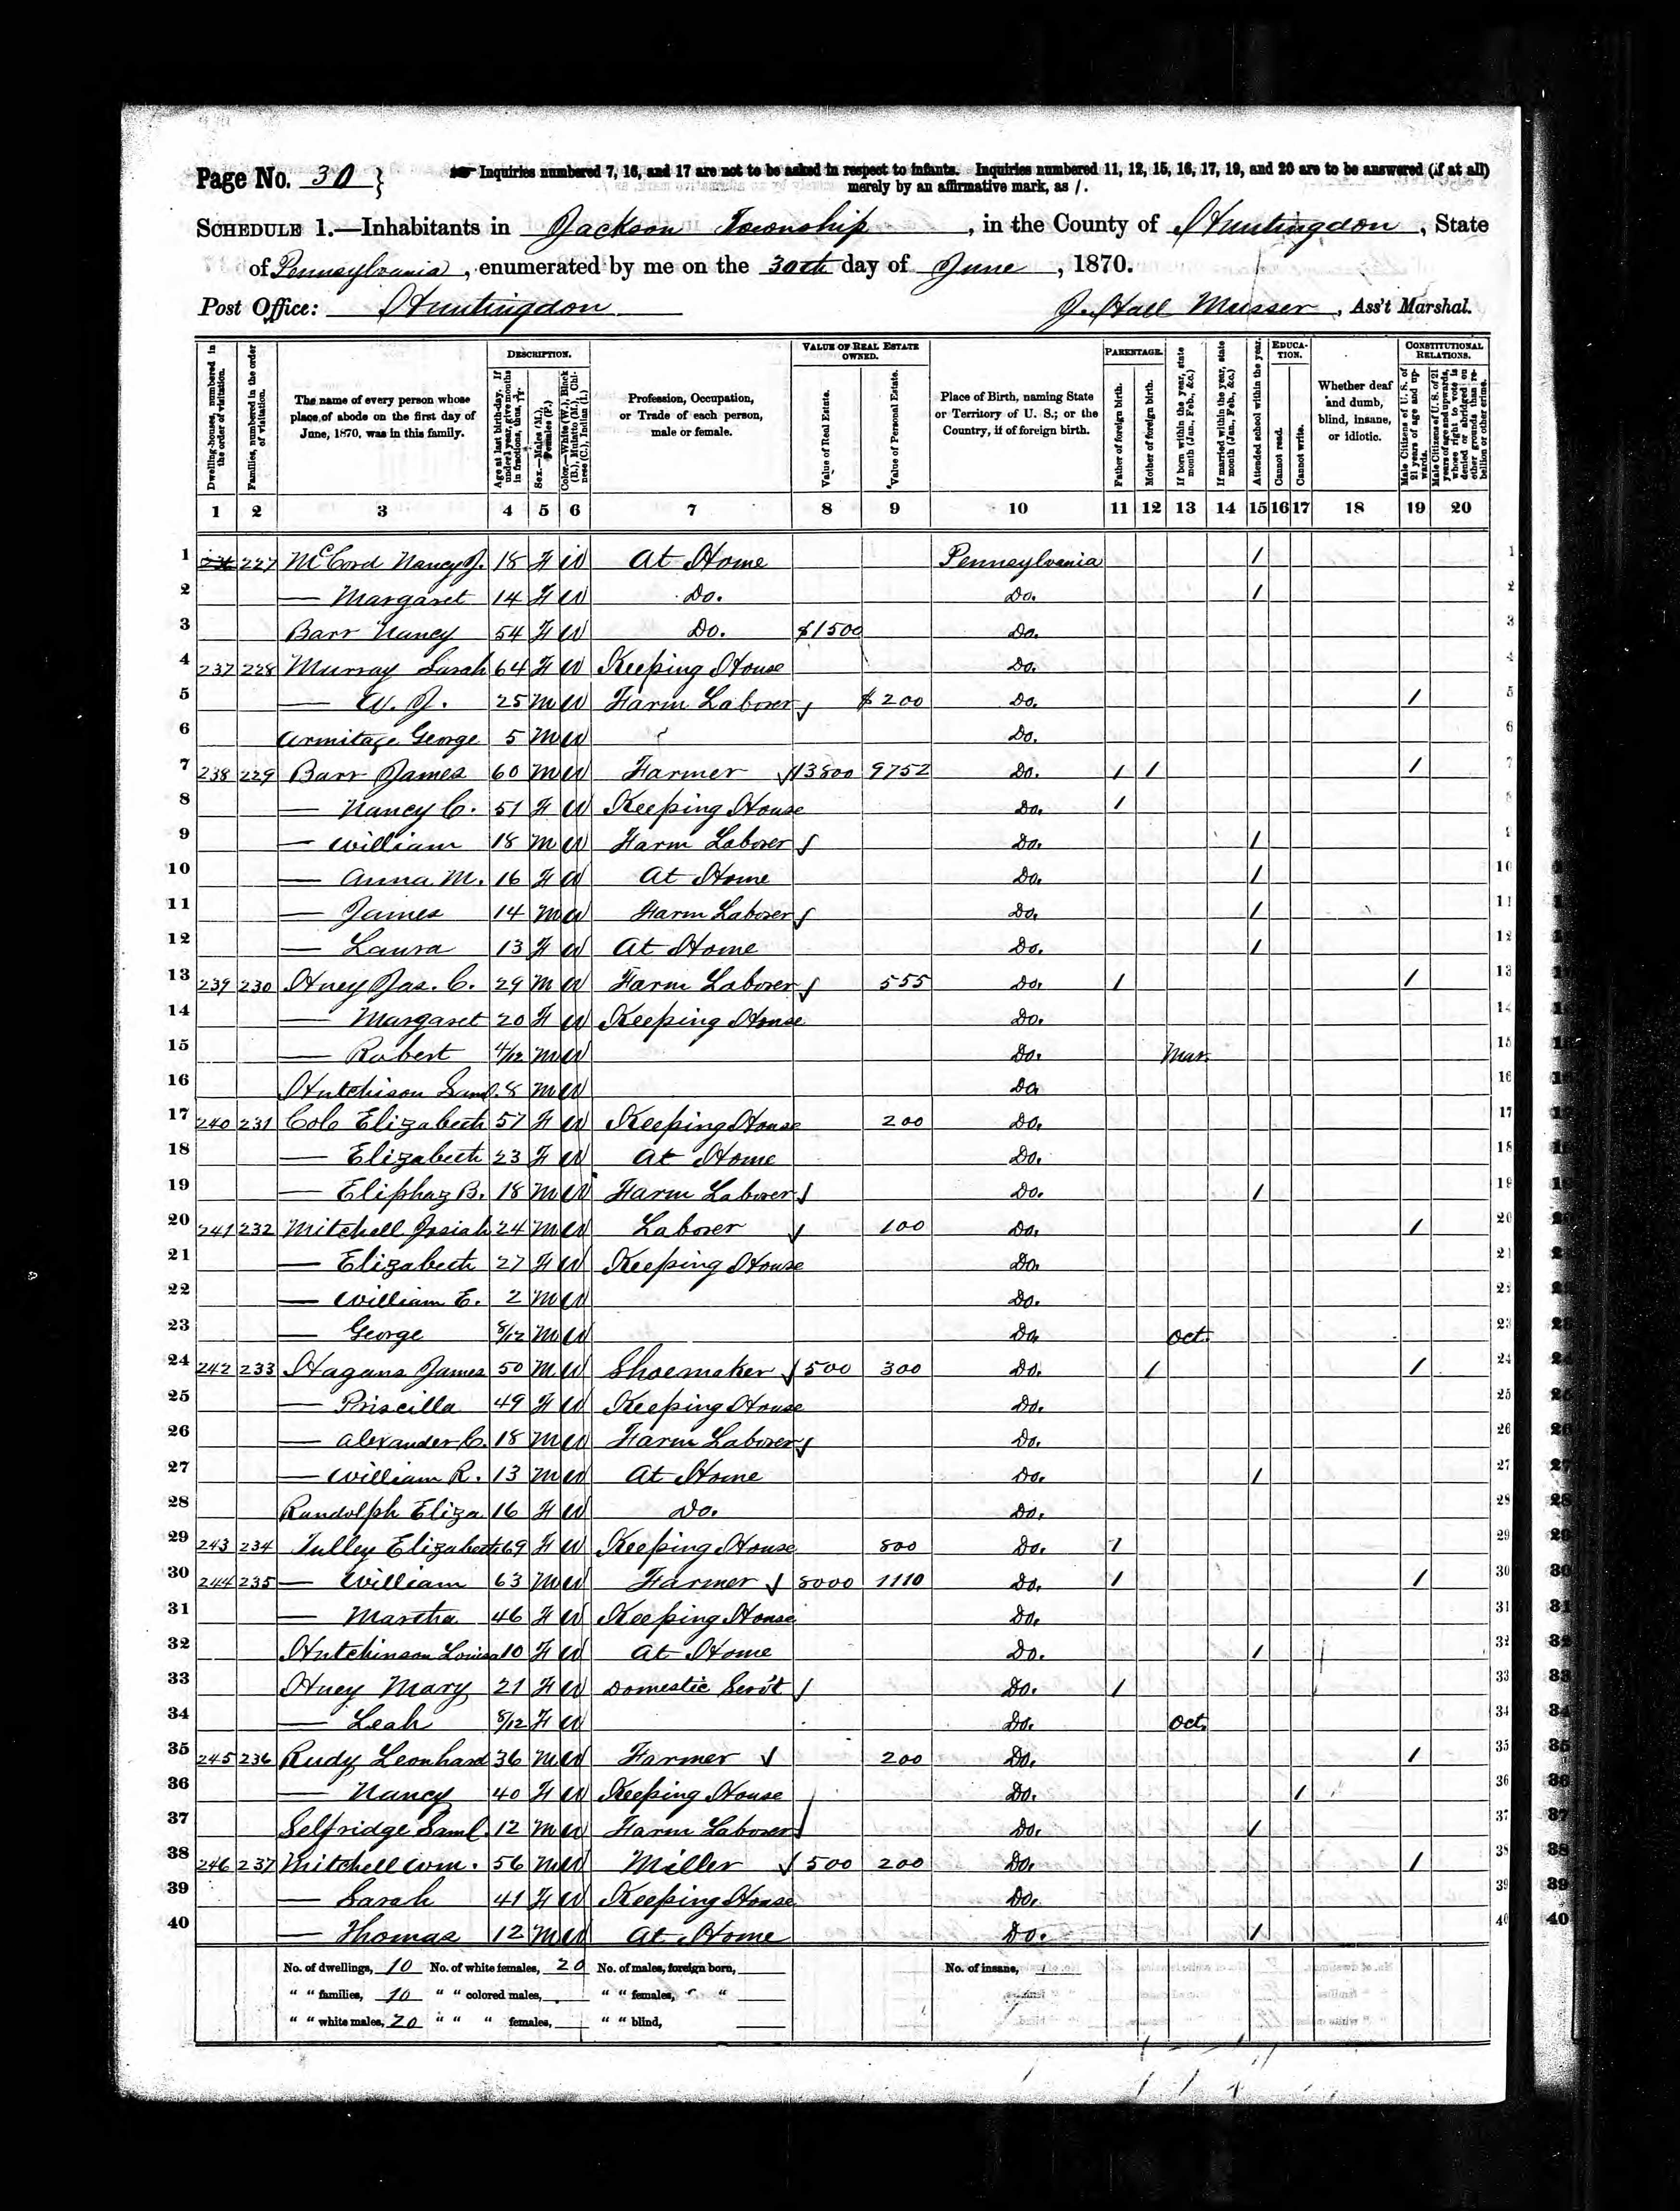 Page No. 30 }
Inquiries numbered 7, 16, and 17 are not to be asked in respect to infants. Inquiries numbered 11, 12, 15, 16, 17, 19, and 20 are to be answered (if at all)
merely by an affirmative mark, as /.
SCHEDULE 1.—Inhabitants in Jackson Township, in the County of Huntingdon, State
of Pennsylvania, enumerated by me on the 30th day of June, 1870.
Post Office: Huntingdon J. Hall Musser, Ass't Marshal.
Dwelling-houses, numbered in the order of visitation.
Families, numbered in the order of visitation.
The name of every person whose place of abode on the first day of June, 1870, was in this family.
DESCRIPTION.
Age at last birth-day. If under 1 year, give months in fractions, thus, 3/12.
Sex.—Males (M.), Females (F.)
Color.—White (W.), Black (B.), Mulatto (M.), Chinese (C.), Indian (I.)
Profession, Occupation, or Trade of each person, male or female.
VALUE OF REAL ESTATE OWNED.
Value of Real Estate.
Value of Personal Estate.
Place of Birth, naming State or Territory of U. S.; or the Country, if of foreign birth.
PARENTAGE.
Father of foreign birth.
Mother of foreign birth.
If born within the year, state month (Jan., Feb., &c.)
If married within the year, state month (Jan., Feb., &c.)
Attended school within the year.
EDUCATION.
Cannot read.
Cannot write.
Whether deaf and dumb, blind, insane, or idiotic.
CONSTITUTIONAL RELATIONS.
Male Citizens of U. S. of 21 years of age and upwards.
Male Citizens of U. S. of 21 years of age and upwards, whose right to vote is denied or abridged on other grounds than rebellion or other crime.
1 2 3 4 5 6 7 8 9 10 11 12 13 14 15 16 17 18 19 20
1 227 McCord Nancy J. 18 F W At Home Pennsylvania / 1
2 — Margaret 14 F W Do. Do. / 2
3 Barr Nancy 54 F W Do. $1500 Do. 3
4 237 228 Murray Sarah 64 F W Keeping House Do. 4
5 — W. J. 25 M W Farm Laborer $200 Do. / 5
6 Armitage George 5 M W Do. 6
7 238 229 Barr James 60 M W Farmer 13800 9752 Do. / / / 7
8 — Nancy C. 51 F W Keeping House Do. / 8
9 — William 18 M W Farm Laborer Do. / 9
10 — Anna M. 16 F W At Home Do. / 10
11 — James 14 M W Farm Laborer Do. / 11
12 — Laura 13 F W At Home Do. / 12
13 239 230 Huey Jas. C. 29 M W Farm Laborer 555 Do. / / 13
14 — Margaret 20 F W Keeping House Do. 14
15 — Robert 4/12 M W Do. Mar. 15
16 Hutchison Saml. 8 M W Do. 16
17 240 231 Colo Elizabeth 57 F W Keeping House 200 Do. 17
18 — Elizabeth 23 F W At Home Do. 18
19 — Eliphaz B. 18 M W Farm Laborer Do. / 19
20 241 232 Mitchell Josiah 24 M W Laborer 100 Do. / 20
21 — Elizabeth 27 F W Keeping House Do. 21
22 — William E. 2 M W Do. 22
23 — George 8/12 M W Do. Oct. 23
24 242 233 Hagans James 50 M W Shoemaker 500 300 Do. / / 24
25 — Priscilla 49 F W Keeping House Do. 25
26 — Alexander C. 18 M W Farm Laborer Do. 26
27 — William R. 13 M W At Home Do. / 27
28 Randolph Eliza 16 F W Do. Do. 28
29 243 234 Tulley Elizabeth 69 F W Keeping House 800 Do. / 29
30 244 235 — William 63 M W Farmer 8000 1110 Do. / / 30
31 — Martha 46 F W Keeping House Do. 31
32 Hutchinson Louisa 10 F W At Home Do. / 32
33 Huey Mary 21 F W Domestic Serv't Do. / 33
34 — Leah 8/12 F W Do. Oct. 34
35 245 236 Rudy Leonhard 36 M W Farmer 200 Do. / 35
36 — Nancy 40 F W Keeping House Do. / 36
37 Selfridge Saml. 12 M W Farm Laborer Do. / 37
38 246 237 Mitchell Wm. 56 M W Miller 500 200 Do. / 38
39 — Sarah 41 F W Keeping House Do. 39
40 — Thomas 12 M W At Home Do. / 40
No. of dwellings, 10 No. of white females, 20 No. of males, foreign born, No. of insane,
" " families, 10 " " colored males, " " females, "
" " white males, 20 " " " females, " " blind,